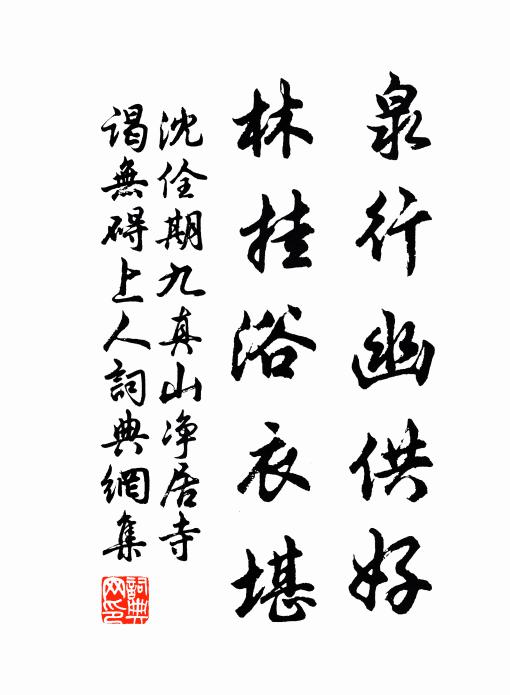 泉行幽供好
林挂浴衣堪
沈佺期九真山净居寺
谒無碍上人詞典網集
詞典網印